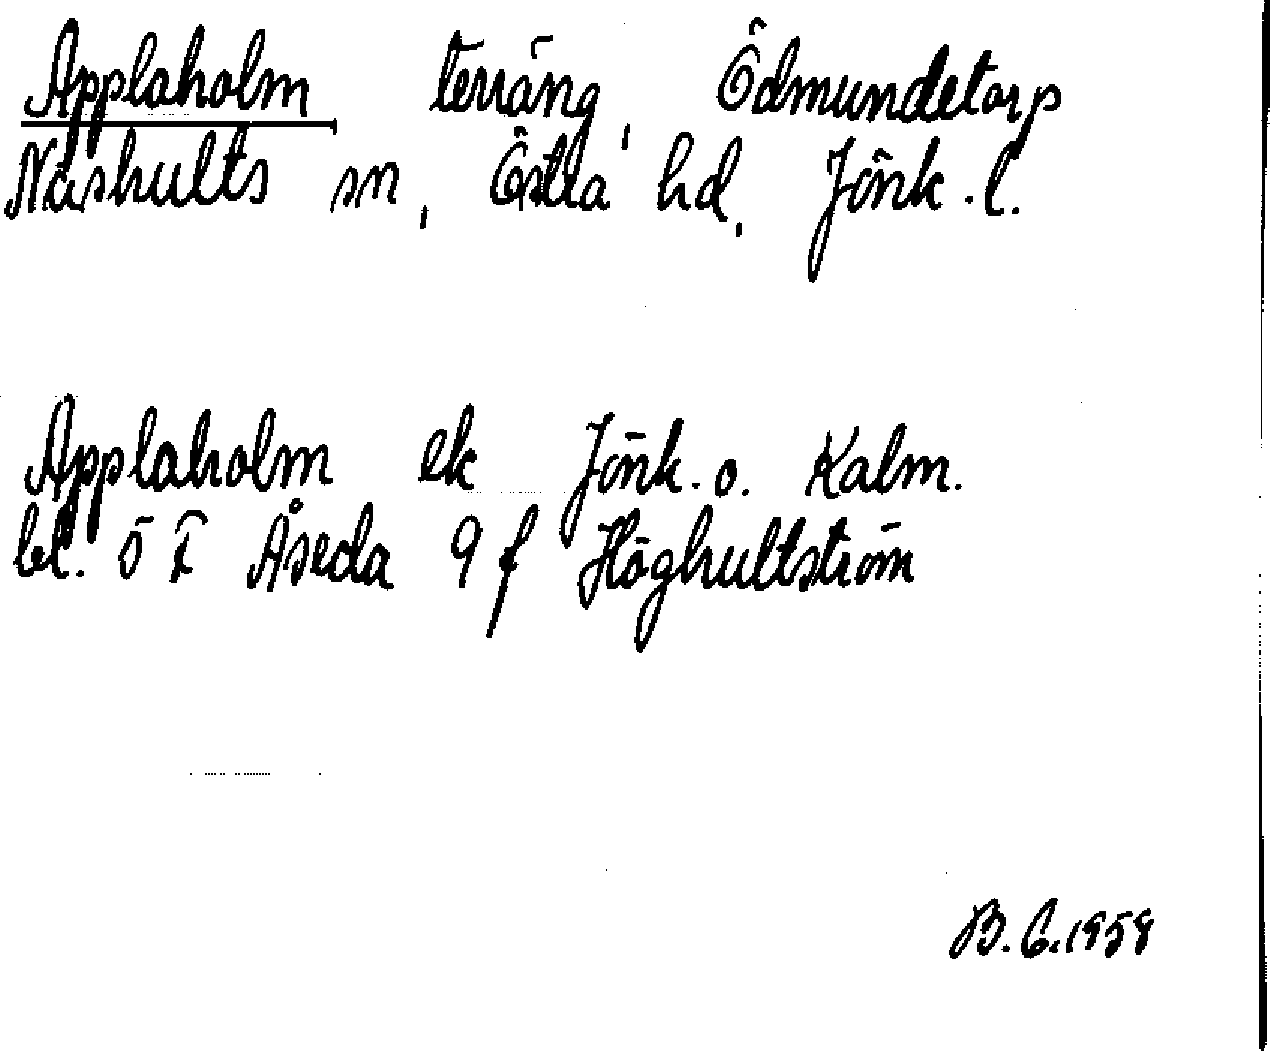 Applaholm terräng, Ödmundetorp
Näshults sn, Östra hd, Jönk.l.
Applaholm ek Jönk. o. Kalm.
bl. Ö I Åseda 9 f Höghultström
B. C. 1958